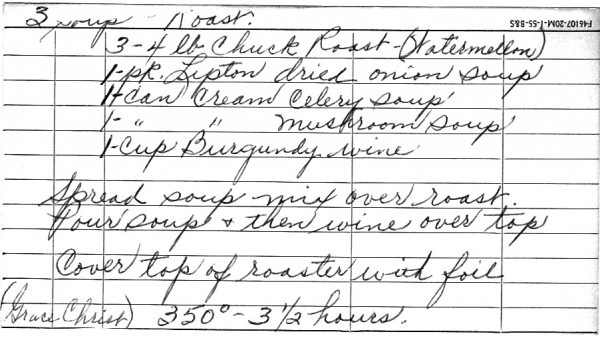 3 soup - Roast.
F46107-20M-1-55-BBS
3-4 lb Chuck Roast-(Watermellon)
1-pk. Lipton dried onion soup
1-can Cream Celery soup
1- " " Mushroom soup
1-Cup Burgundy wine
Spread soup mix over roast.
Pour soup & then wine over top
Cover top of roaster with foil
(Grace Christ) 350° - 3 1/2 hours.